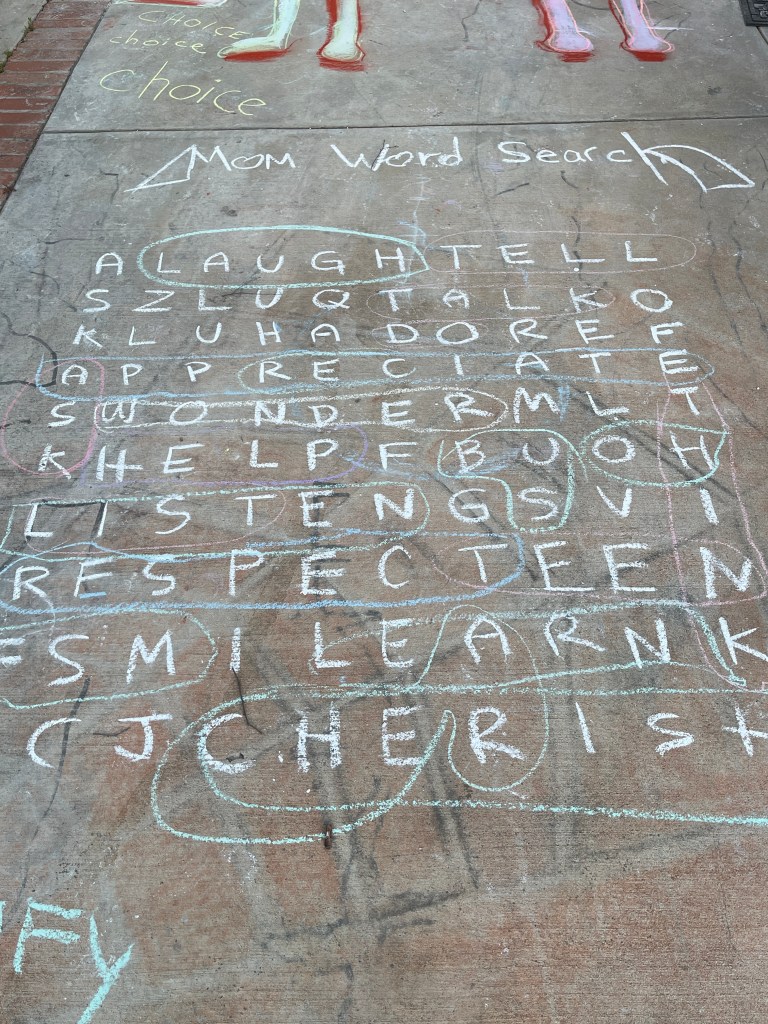 CHOICE
choice
choice
Mom Word Search
A L A U G H T E L L
S Z L U Q T A L K O
K L U H A D O R E F
A P P R E C I A T E
S W O N D E R M L T
K H E L P F B U O H
L I S T E N G S V I
R E S P E C T E E N
E S M I L E A R N K
C J C H E R I S H
FY